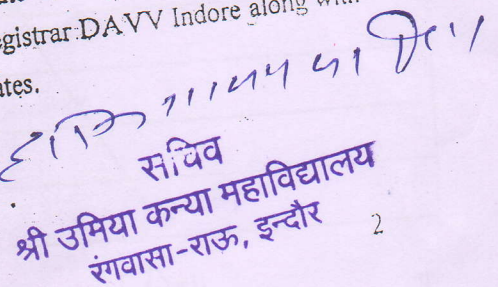 egistrar DAVV Indore along with
ates.
सचिव
श्री उमिया कन्या महाविद्यालय
रंगवासा-राऊ, इन्दौर
2